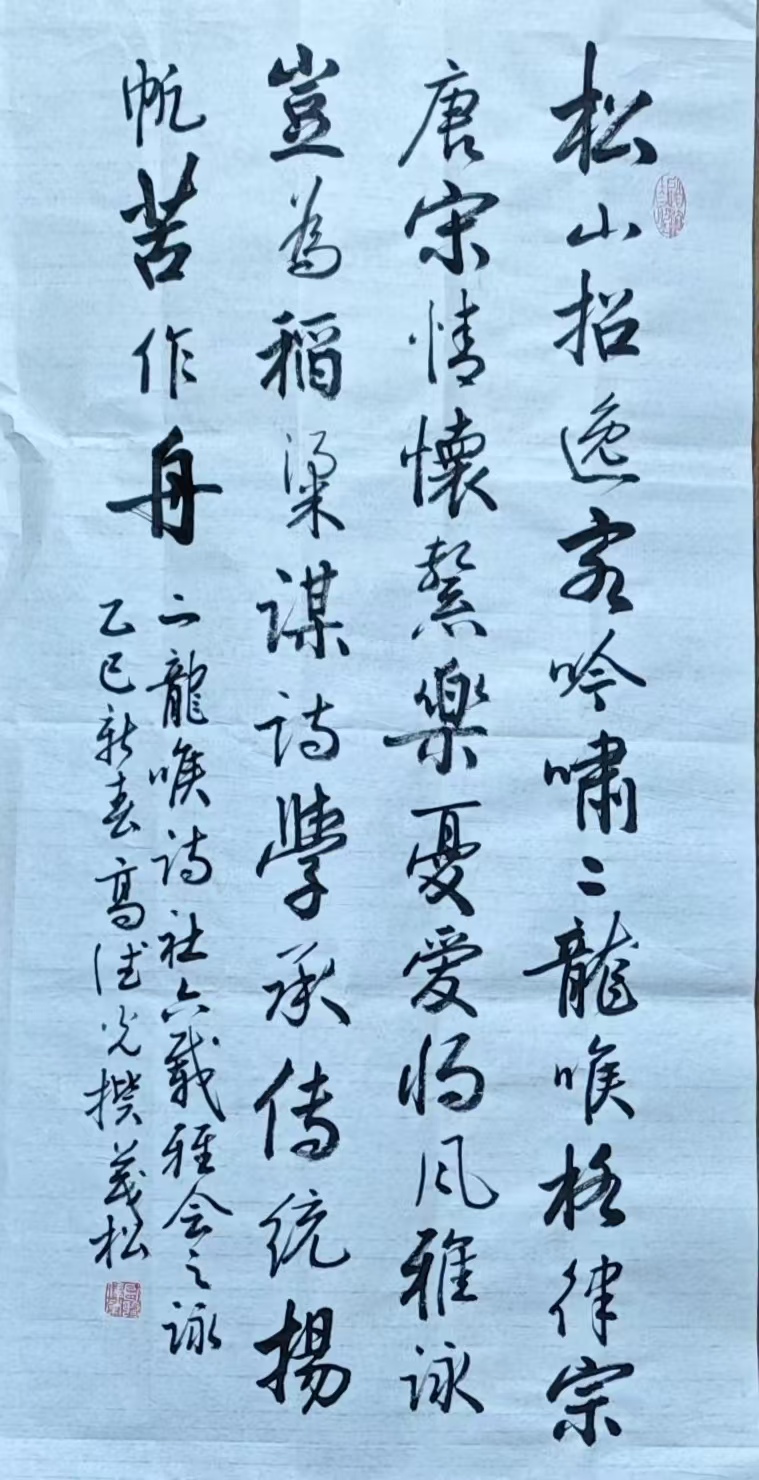 松山招逸客吟啸二龍喉格律宗
唐宋情懷繫樂憂爱将風雅詠
豈為稻粱謀詩學承传统揚
帆苦作舟
二龍喉诗社六载雅会之詠
乙巳新春高德光撰茂松